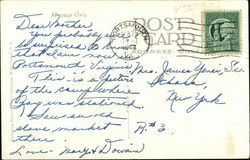 Message Only
POST
CARD
ADDRESS ONLY
Dear Mother
You probably will
be surprised to know
that were now
Portsmouth Virginia.
This is a picture
of the camp where
Guy was stationed
Saw an old
slave market
there.
Love - Mary & Dorian
Mrs. James Yones, Sr.
Ithaca,
New York
R.#3